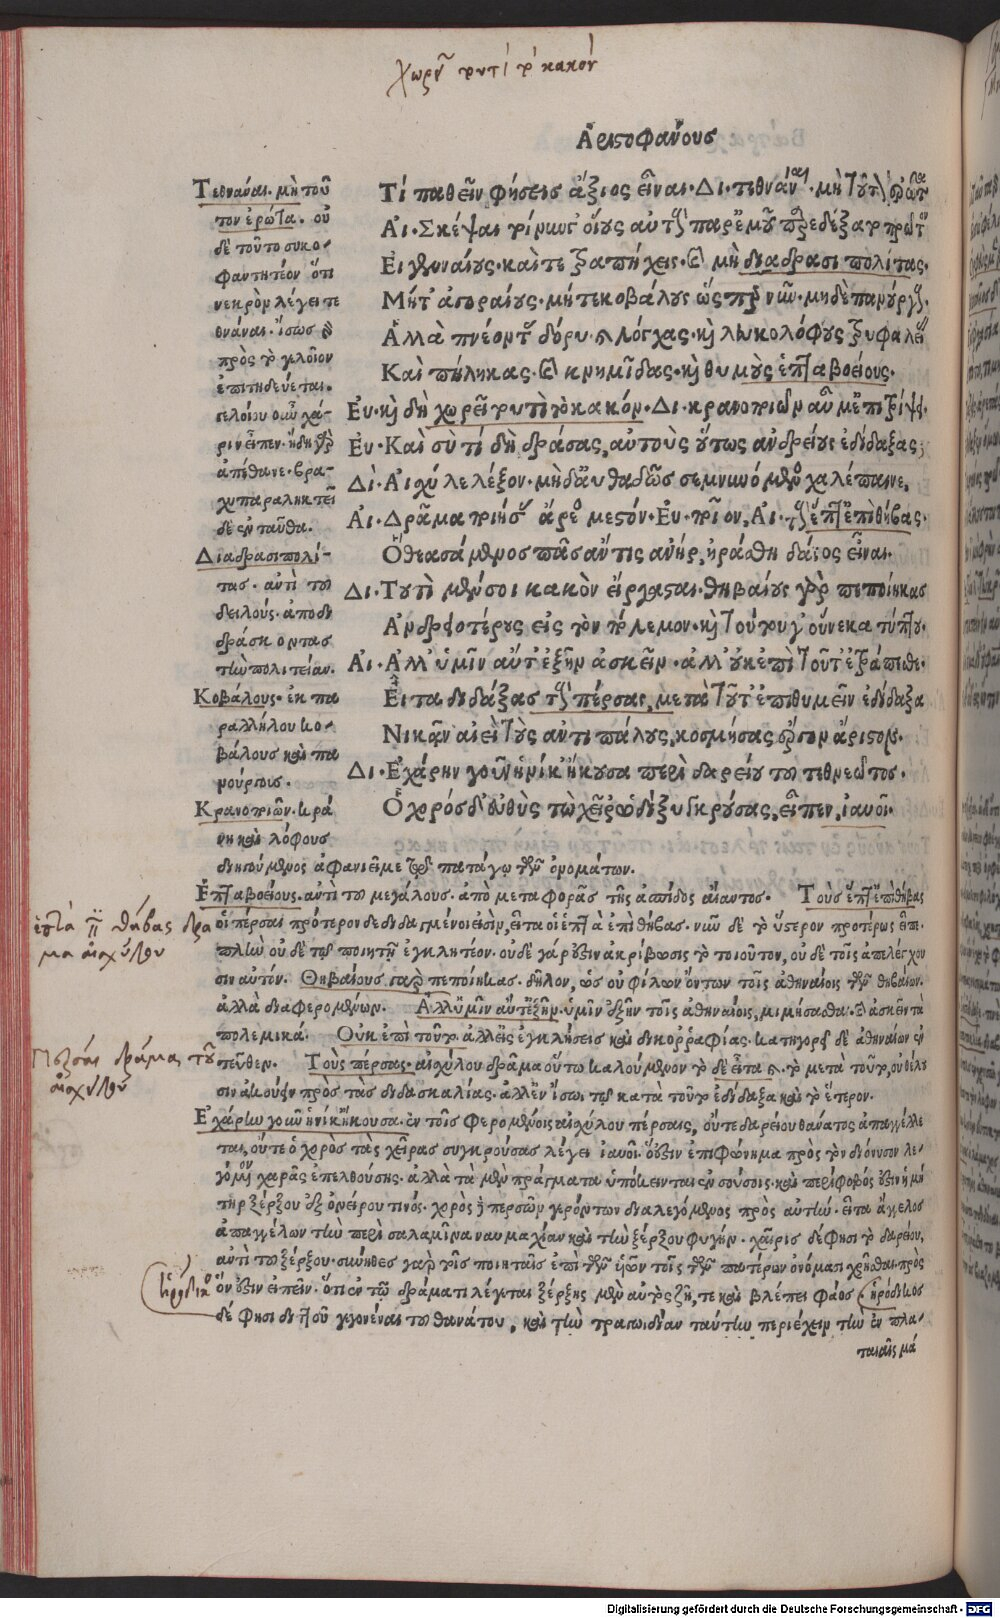 χωρεῖ τουτὶ τὸ κακόν
Ἀριστοφάνους
Τί παθεῖν φήσεις ἄξιος εἶναι. Δι. τεθνάναι. μὴ τοῦτον ἐρώτα
Αι. Σκέψαι τοίνυν οἵους αὐτοὺς παρ' ἐμοῦ παρεδέξατο πρῶτον
Εἰ γενναίους. καὶ τετραπήχεις. καὶ μὴ διαδρασιπολίτας.
Μήτ' ἀγοραίους. μήτε κοβάλους ὥσπερ νῦν. μηδὲ πανούργους.
Ἀλλὰ πνέοντας δόρυ καὶ λόγχας. καὶ λευκολόφους τρυφαλείας
Καὶ πήληκας. καὶ κνημῖδας. καὶ θυμοὺς ἑπταβοείους.
Ευ. καὶ δὴ χωρεῖ τουτὶ τὸ κακόν. Δι. κρανοποιῶν αὖ μ' ἐπιτρίψει.
Ευ. Καὶ σὺ τί δὴ δράσας, αὐτοὺς οὕτως ἀνδρείους ἐδίδαξας;
Δι. Αἰσχύλε λέξον. μηδ' αὐθαδῶς σεμνυνόμενος χαλέπαινε.
Αι. Δρᾶμα ποιήσας ἄρεος μεστόν. Ευ. ποῖον, Αι. τοὺς ἕπτ' ἐπὶ θήβας.
Ὃ θεασάμενος πᾶς ἄν τις ἀνὴρ, ἠράσθη δάϊος εἶναι.
Δι. Τουτὶ μέν σοι κακὸν εἴργασται. θηβαίους γὰρ πεποίηκας
Ἀνδρειοτέρους εἰς τὸν πόλεμον. καὶ τούτου γ' οὕνεκα τύπτου.
Αι. Ἀλλ' ὑμῖν αὔτ' ἐξῆν ἀσκεῖν. ἀλλ' οὐκ ἐπὶ τοῦτ' ἐτράπεσθε.
Εἶτα διδάξας τοὺς πέρσας, μετὰ τοῦτ' ἐπιθυμεῖν ἐδίδαξα
Νικᾶν αἰεὶ τοὺς ἀντιπάλους, κοσμήσας ἔργον ἄριστον.
Δι. Ἐχάρην γοῦν ἡνίκ' ἤκουσα περὶ δαρείου τοῦ τεθνεῶτος.
Ὁ χορός δ' εὐθὺς τὼ χεῖρ' ὡδὶ ξυγκρούσας, εἶπεν, ἰαυοῖ.
Τεθνάναι. μὴ τοῦ
τον ἐρώτα. οὐ
δὲ τοῦτο συκο-
φαντητέον ὅτι
νεκρὸν λέγει τε
θνάναι. ἴσως δὲ
πρὸς τὸ γελοῖον
ἐπιτηδεύεται.
γελοίου οὖν χά-
ριν εἶπεν. ἤδη γὰρ
ἀπέθανε. βρα-
χυπαραληκτεῖ
δὲ ἐνταῦθα.
Διαδρασιπολί-
τας. ἀντὶ τοῦ
δειλούς. ἀποδι
δράσκοντας
τὴν πολιτείαν.
Κοβάλους. ἐκ πα
ραλλήλου κο-
βάλους καὶ πα
νούργοις.
Κρανοποιῶν. κρά
νη καὶ λόφους
διηγούμενος ἀφανιεῖ με τῷ πατάγῳ τῶν ὀνομάτων.
Ἑπταβοείους. ἀντὶ τοῦ μεγάλους. ἀπὸ μεταφορᾶς τῆς ἀσπίδος αἴαντος. Τοὺς ἕπτ' ἐπὶ θήβας
οἱ πέρσαι πρότερον δεδιδαγμένοι εἰσὶν, εἶτα οἱ ἑπτὰ ἐπὶ θήβας. νῦν δὲ τὸ ὕστερον προτέρως εἶπε.
πλὴν οὐδὲ τῷ ποιητῇ ἐγκλητέον. οὐδὲ γάρ ἐστιν ἀκρίβωσις τὸ τοιοῦτον, οὐδὲ τοῖς ἀπελέγχου
σιν αὐτόν. Θηβαίους γὰρ πεποίηκας. δῆλον, ὡς οὐ φίλων ὄντων τοῖς ἀθηναίοις τῶν θηβαίων.
ἀλλὰ διαφερομένων. Ἀλλ' ὑμῖν αὔτ' ἐξῆν. ὑμῖν ἐξῆν τοῖς ἀθηναίοις, μιμήσασθαι καὶ ἀσκεῖν τὰ
πολεμικά. Οὐκ ἐπὶ τοῦτο. ἀλλ' εἰς ἐγκλήσεις καὶ δικορραφίας. κατηγορεῖ δὲ ἀθηναίων ἐν
τεῦθεν. Τοὺς πέρσας. αἰσχύλου δρᾶμα οὕτω καλούμενον τὸ δὲ εἶτα καὶ τὸ μετὰ τοῦτο, οὐ θέλου
σιν ἀκούειν πρὸς τὰς διδασκαλίας. ἀλλ' ἐν ἴσῳ τῷ κατὰ τοῦτο ἐδίδαξα καὶ τὸ ἕτερον.
Ἐχάρην γοῦν ἡνίκ' ἤκουσα. ἐν τοῖς φερομένοις αἰσχύλου πέρσαις, οὔτε δαρείου θάνατος ἀπαγγέλλε
ται, οὔτε ὁ χορὸς τὰς χεῖρας συγκρούσας λέγει ἰαυοῖ. ὅ ἐστιν ἐπιφώνημα πρὸς τὸν διόνυσον λε-
γόμενον χαρᾶς ἐπελθούσης. ἀλλὰ τὰ μὲν πράγματα ὑπόκεινται ἐν σούσοις. καὶ περίφοβός ἐστιν ἡ μή
τηρ ξέρξου ἐξ ὀνείρου τινός. χορὸς δὲ περσῶν γερόντων διαλεγόμενος πρὸς αὐτήν. εἶτα ἄγγελος
ἀπαγγέλων τὴν περὶ σαλαμῖνα ναυμαχίαν καὶ τὴν ξέρξου φυγήν. χαῖρις δέ φησι τὸ δαρείου,
ἀντὶ τοῦ ξέρξου. σύνηθες γὰρ τοῖς ποιηταῖς ἐπὶ τῶν υἱῶν τοῖς τῶν πατέρων ὀνόμασι χρῆσθαι. πρὸς
ὅν ἐστιν εἰπεῖν. ὅτι ἐν τῷ δράματι λέγεται ξέρξης μὲν αὐτὸς ζῇ, τε καὶ βλέπει φάος. ἡρόδικος
δέ φησι διττοῦ γεγονέναι τοῦ θανάτου, καὶ τὴν τραγωιδίαν ταύτην περιέχειν τὴν ἐν πλα-
ταιαῖς μά
ἑπτὰ ἐπὶ θήβας δρᾶ
μα αἰσχύλου
Πέρσαι δρᾶμα τοῦ
αἰσχύλου
ἡρόδικος
Digitalisierung gefördert durch die Deutsche Forschungsgemeinschaft - DFG